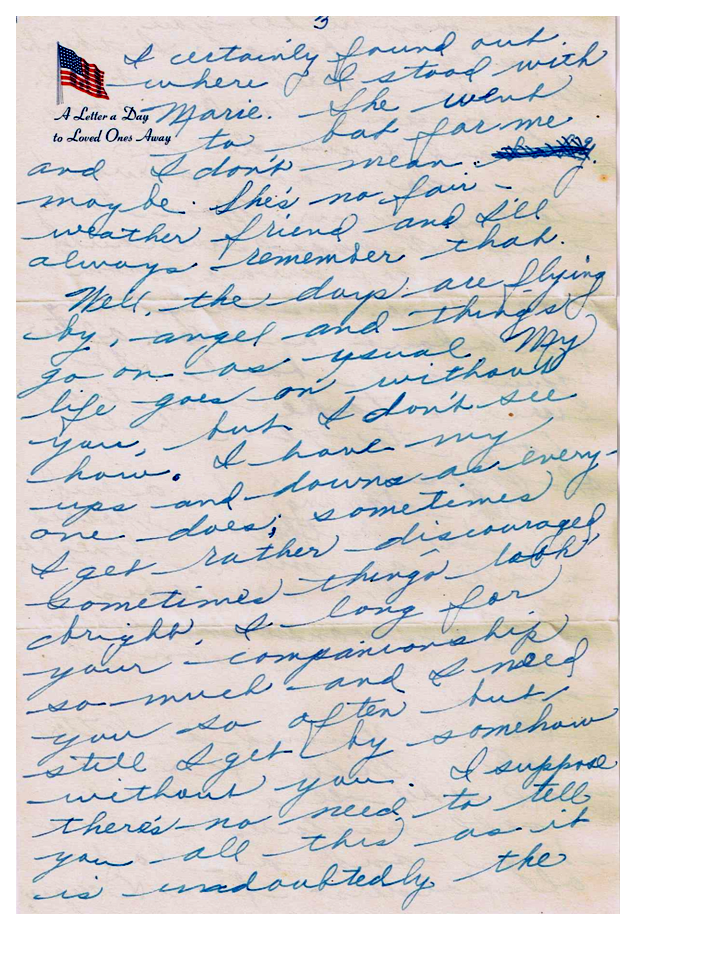 3
I certainly found out
where I stood with
Marie. She went
A Letter a Day
to Loved Ones Away
to bat for me
and I don't mean
maybe. She's no fair-
weather friend and I'll
always remember that.
Well, the days are flying
by, angel and things
go on as usual. My
life goes on without
you, but I don't see
how. I have my
ups and downs as every-
one does; sometimes
I get rather discouraged
sometimes things look
bright. I long for
your companionship
so much and I need
you so often but
still I get by somehow
without you. I suppose
there's no need to tell
you all this as it
is undoubtedly the